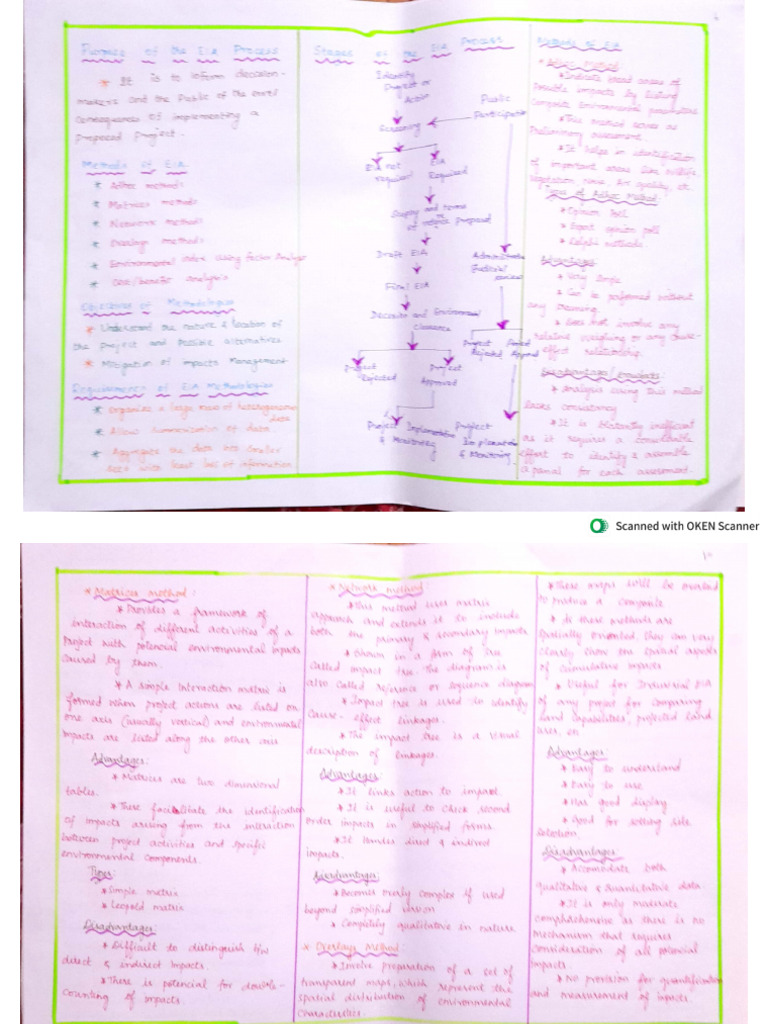 Purpose of the EIA Process
* It is to inform decision-
makers and the Public of the envtl
consequences of implementing a
proposed project.
Methods of EIA
* Adhoc methods
* Matrices methods
* Network methods
* Overlays methods
* Environmental index using factor Analysis
* Cost/benefit analysis
Objectives of Methodologies
* Understand the nature & location of
the project and possible alternatives
* Mitigation of impacts Management
Requirements of EIA Methodologies
* Organize a large mass of heterogeneous
data
* Allow summarization of data
* Aggregate the data into smaller
sets with least loss of information
Stages of the EIA Process
Identify
Project or
Action
Public
Participation
Screening
EIA not
required
EIA
Required
Scoping and terms
of reference proposed
Draft EIA
Final EIA
Administrative
Judicial
Decision and Environmental
Clearance
Project
Rejected
Project
Approved
Project
Rejected
Project
Approved
Project Implementation
& Monitoring
Project
Implementation
& Monitoring
Methods of EIA
* Adhoc Method:
* Indicate broad areas of
Possible impacts by listing
Composite Environmental parameters
* This method serves as
Preliminary assessment.
* It helps in identification
of important areas like wildlife,
vegetation, noise, Air quality, etc
Types of Adhoc Method:
* Opinion Poll
* Expert opinion poll
* Delphi methods.
Advantages:
* Very Simple
* Can be performed without
any training.
* Does not involve any
relative weighing or any cause-
effect relationship.
Disadvantages / Drawbacks:
* Analysis using this method
lacks consistency
* It is blatantly inefficient
as it requires a considerable
effort to identify & assemble
a panel for each assessment.
Scanned with OKEN Scanner
* Matrices method :
* Provides a framework of
interaction of different activities of a
Project with potential environmental impacts
caused by them.
* A simple interaction matrix is
formed when project actions are listed on
one axis (usually vertical) and environmental
impacts are listed along the other axis
Advantages:
* Matrices are two dimensional
tables.
* These facilitate the identification
of impacts arising from the interaction
between project activities and specific
environmental components.
Types:
* Simple matrix
* Leopold matrix
Disadvantages:
* Difficult to distinguish b/w
direct & indirect impacts.
* There is potential for double-
counting of impacts.
* Network method
* This method uses matrix
approach and extends it to include
both the primary & secondary impacts
* Shown in a form of tree
called impact tree. The diagram is
also called reference or sequence diagram
* Impact tree is used to identify
cause - effect linkages.
* The impact tree is a visual
description of linkages.
Advantages:
* It links action to impact.
* It is useful to check second
order impacts in simplified forms.
* It handles direct & indirect
impacts.
Disadvantages:
* Becomes overly complex if used
beyond simplified version
* Completely qualitative in nature
* Overlays Method
* Involve preparation of a set of
transparent maps, which represent the
spatial distribution of environmental
characteristics.
* These maps will be overlaid
to produce a composite
* As these methods are
spatially oriented, they can very
clearly show the spatial aspects
of cumulative impacts
* Useful for Industrial EIA
of any project for comparing
land capabilities, projected land
uses, etc
Advantages:
* Easy to understand
* Easy to use
* Has good display
* Good for setting site
selection.
Disadvantages:
* Accomodate both
qualitative & quantitative data
* It is only moderate
comprehensive as there is no
mechanism that requires
consideration of all potential
impacts
* No provision for quantification
and measurement of impacts.